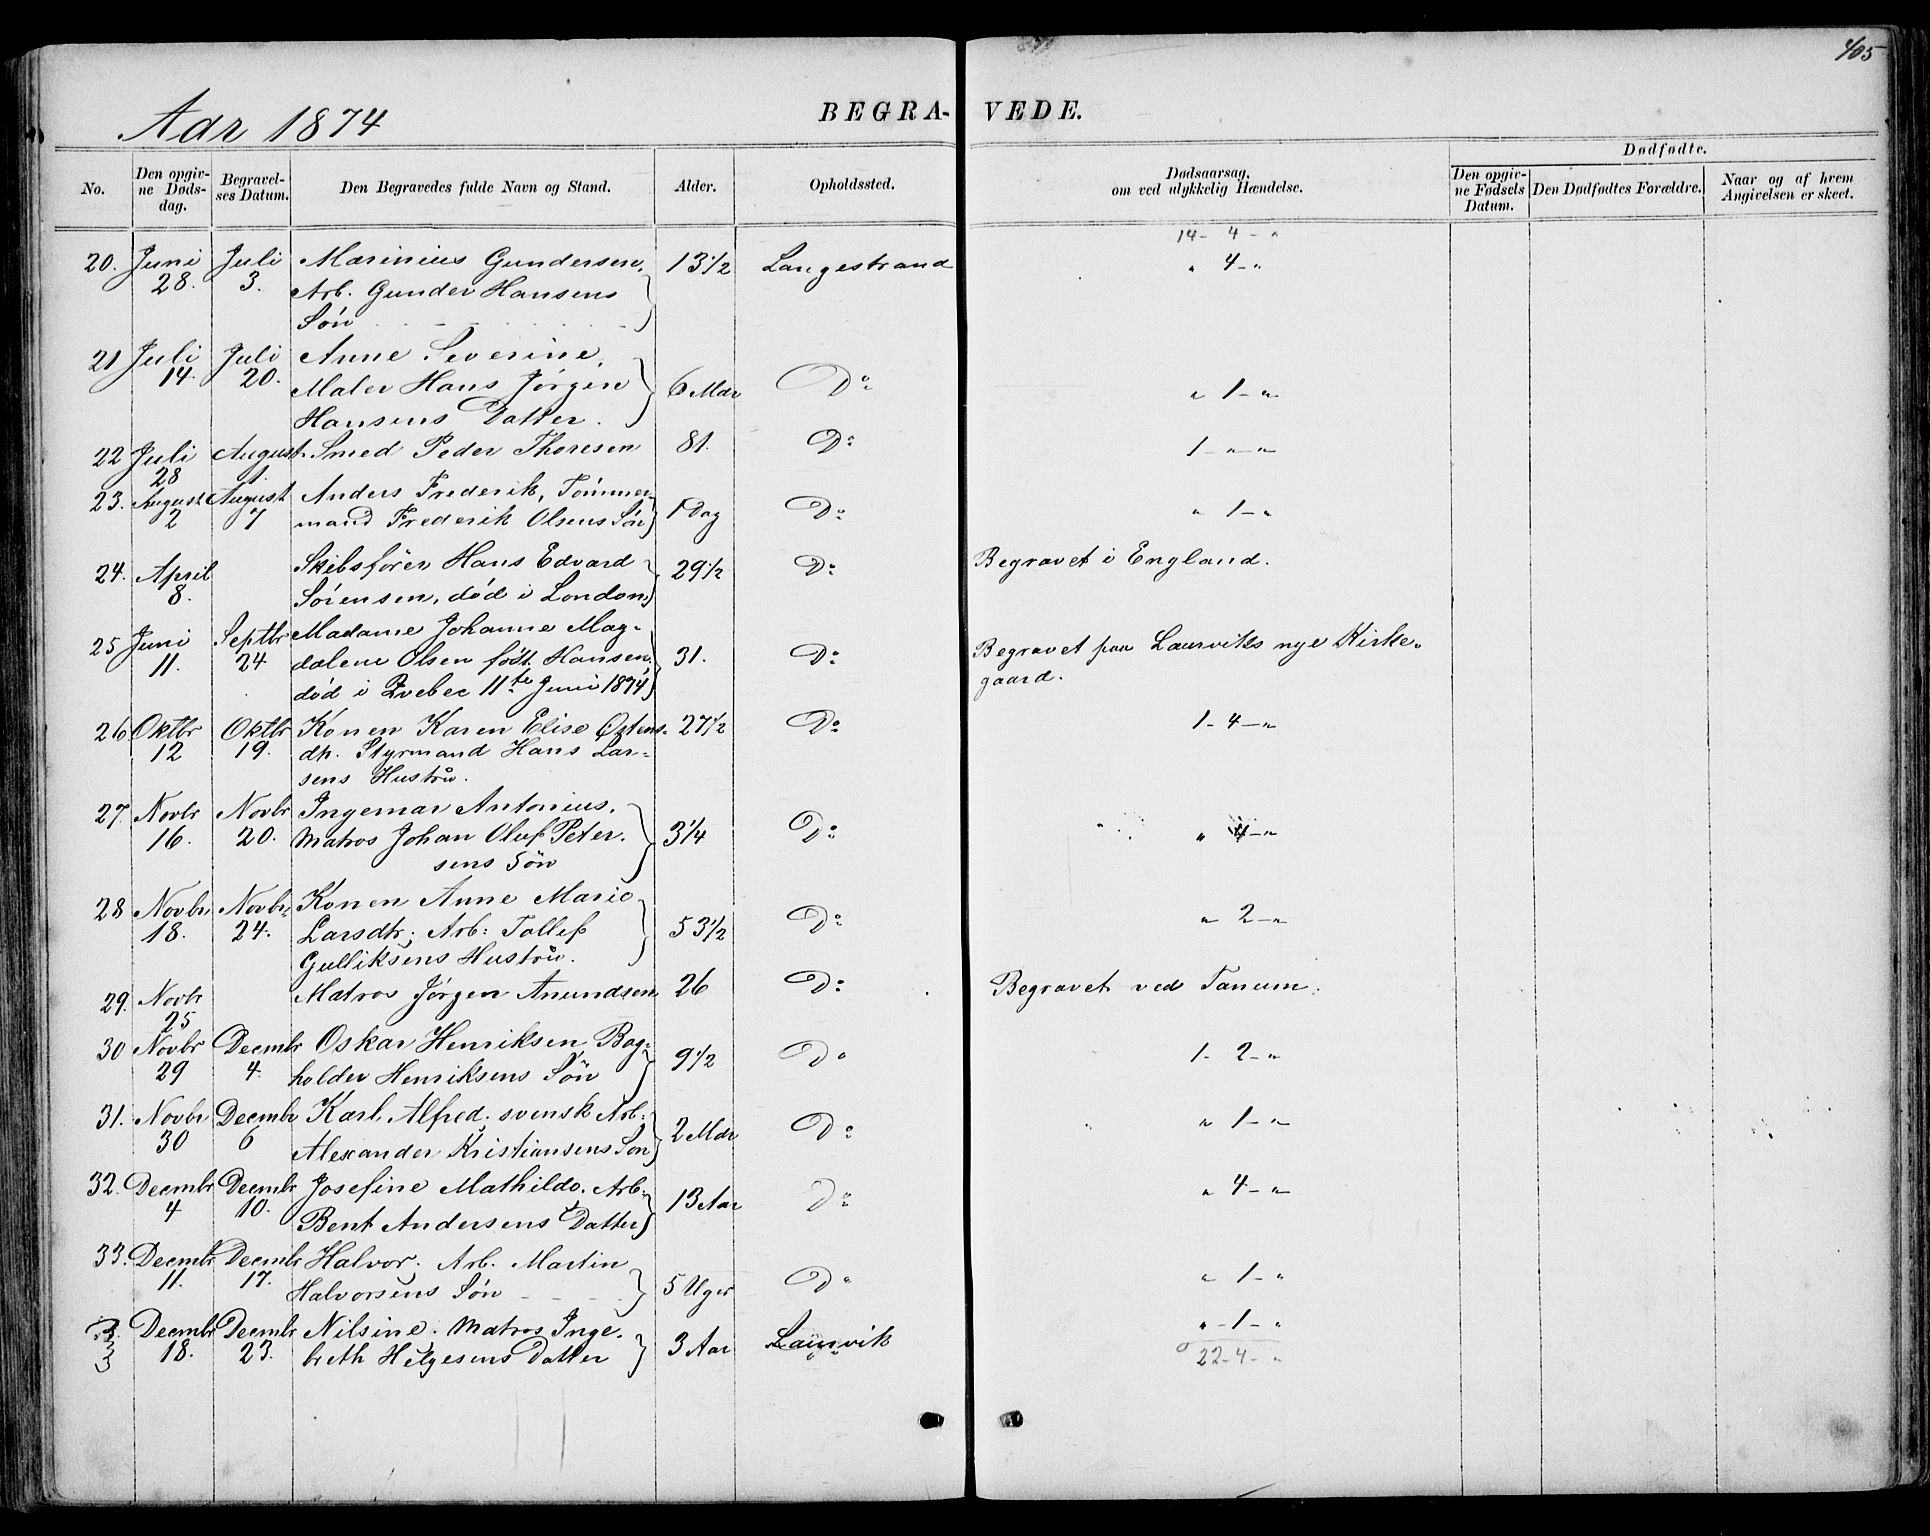 405
Aar 1874
BEGRA- VEDE.
Dødfødte.
No. Den opgiv- Begravel- Den Begravedes fulde Navn og Stand. Alder. Opholdssted. Dødsaarsag, Den opgiv- Den Dødfødtes Forældre. Naar og af hvem
ne Døds- ses Datum. om ved ulykkelig Hændelse. ne Fødsels Angivelsen er skeet.
dag. Datum.
14 - 4 - "
20. Juni Juli Marinius Gundersen, 13 1/2 Langestrand " 4 - "
28. 3. Arb. Gunder Hansens
Søn
21 Juli Juli Anne Severine,
14. 20. Maler Hans Jørgen 6 Mdr Do " 1 - "
Hansens Datter.
22 Juli August Smed Peder Thoresen 81. Do 1 - " - "
28 1.
23. August August Anders Frederik, Tømmer-
2 7 mand Frederik Olsens Søn 1 Dag Do " 1 - "
24. April Skibsfører Hans Edvard 29 1/2 Do Begravet i England.
8. Sørensen, død i London.
25 Juni Septbr Madame Johanne Mag-
11. 24 dalene Olsen født Hansen, 31. Do Begravet paa Laurviks nye Kirke-
død i Qvebec 11te Juni 1874 gaard.
26 Oktbr Oktbr Konen Karen Elise Østens- 27 1/2 Do 1 - 4 - "
12 19. dr. Styrmand Hans Lar-
sens Hustru.
27. Novbr Novbr Ingemar Antonius,
16. 20. Matros Johan Oluf Peter- 3 1/4 Do " 4 - "
sens Søn
28 Novbr Novbr. Konen Anne Marie
18. 24. Larsdtr; Arb: Tollef 53 1/2 Do " 2 - "
Gulliksens Hustru.
29. Novbr Matros Jørgen Anundsen 26 Do Begravet ved Tanum.
25
30 Novbr Decmbr Oskar Henriksen, Bog-
29 4. holder Henriksens Søn 9 1/2 Do 1 - 2 - "
31. Novbr Decmbr Karl Alfred, svensk Arb:
30 6 Alexander Kristiansens Søn 2 Mdr Do " 1 - "
32. Decmbr Decmbr Josefine Mathilde. Arb:
4 10. Bent Andersens Datter 13 Aar Do " 4 - "
33. Decmbr Decmbr Halvor. Arb. Martin
11. 17. Halvorsens Søn 5 Uger Do " 1 - "
Decmbr Decmbr Nilsine. Matros Inge- " - 1 - "
18. 23. breth Helgesens Datter 3 Aar Laurvik 22 - 4 - "